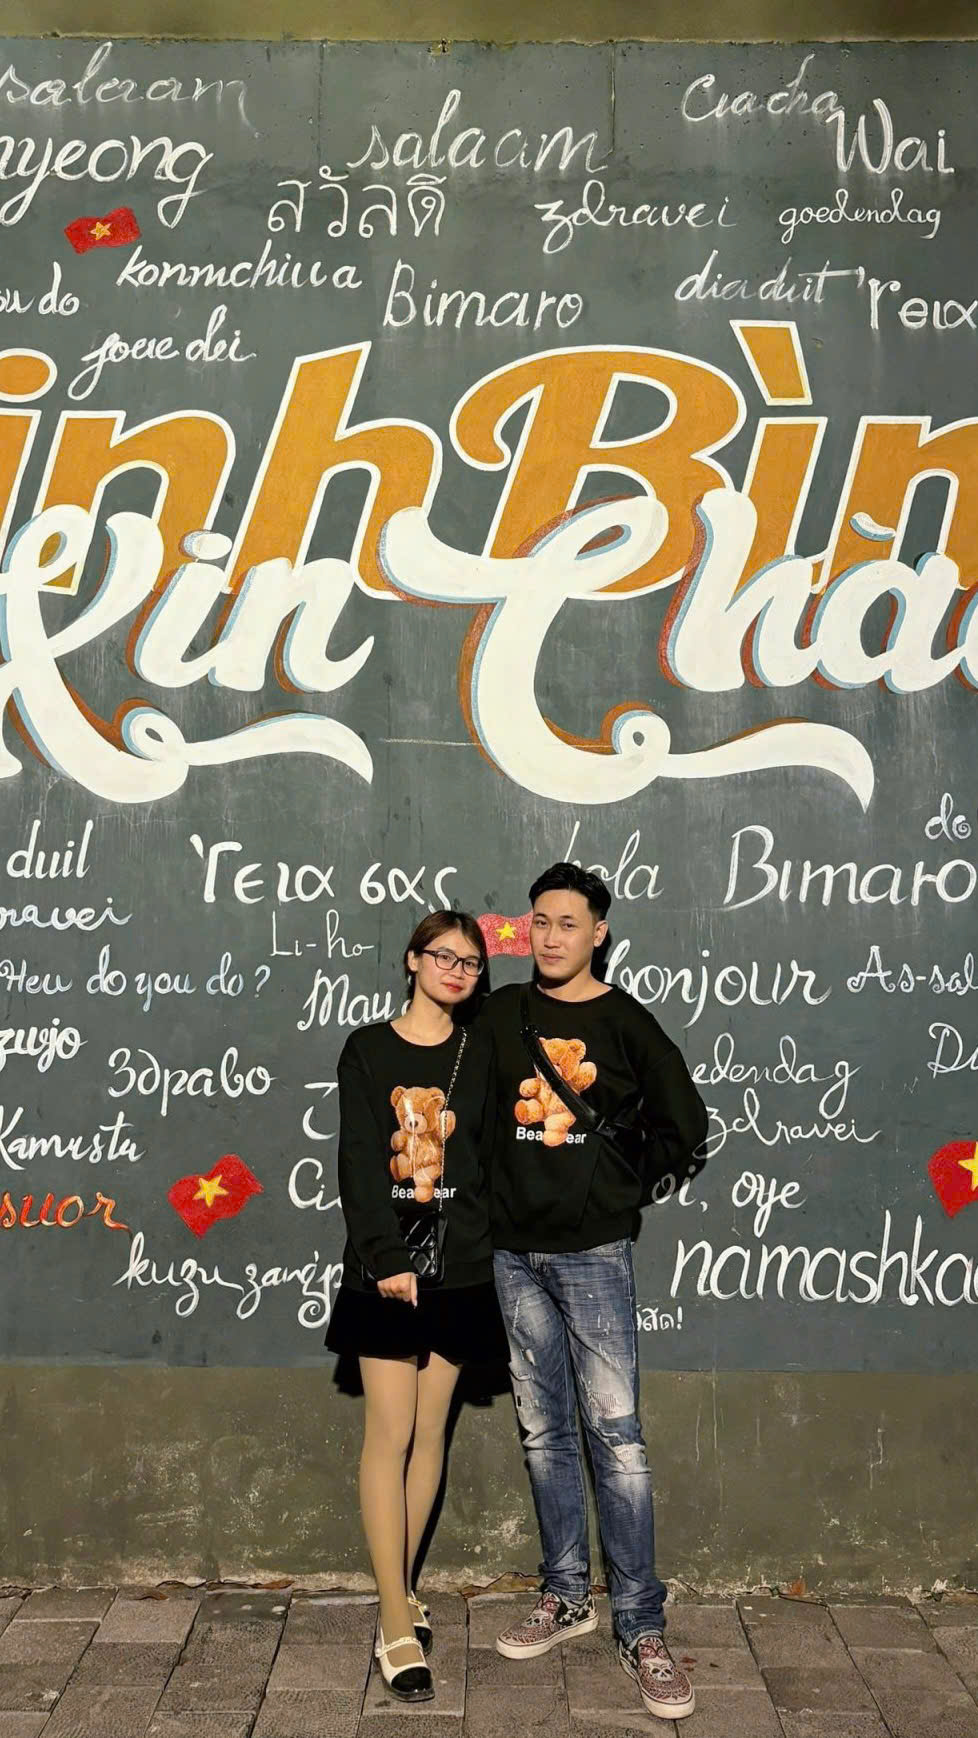 salaam
Ciacha
nyeong
salaam
Wai
สวัสดี
zdravei
goedendag
konnichiwa
ou do
Bimaro
dia duit
Γεια
joue dei
inh Bìn
Xin Chào
do
duil
Γεια σας
hola
Bimaro
ravei
Li-ho
Heu do you do?
Mau
bonjour
As-sal
zwjo
Здраво
edendag
zdravei
Kamusta
Ci
oi, oye
suor
kuzu zangp
namashka
Bea ear
Bea ear